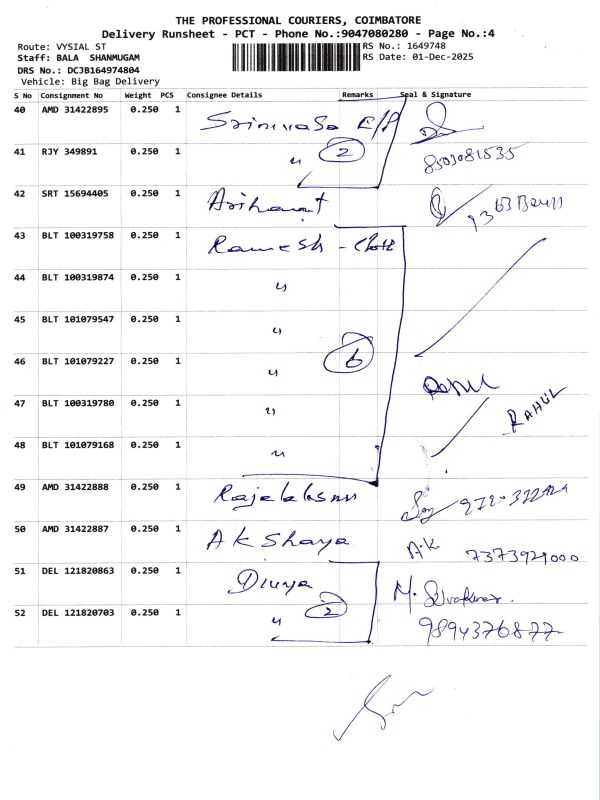 THE PROFESSIONAL COURIERS, COIMBATORE
Delivery Runsheet - PCT - Phone No.:9047080280 - Page No.:4
Route: VYSIAL ST
RS No.: 1649748
Staff: BALA SHANMUGAM
RS Date: 01-Dec-2025
DRS No.: DCJB164974804
Vehicle: Big Bag Delivery
S No Consignment No Weight PCS Consignee Details Remarks Seal & Signature
40 AMD 31422895 0.250 1 Srinivasa E/P
41 RJY 349891 0.250 1 " 2 8503081535
42 SRT 15694405 0.250 1 Arihant
43 BLT 100319758 0.250 1 Ramesh - Cloth
44 BLT 100319874 0.250 1 "
45 BLT 101079547 0.250 1 "
46 BLT 101079227 0.250 1 " 6
47 BLT 100319780 0.250 1 " RAHUL
48 BLT 101079168 0.250 1 "
49 AMD 31422888 0.250 1
50 AMD 31422887 0.250 1 Akshaya A.K 7373929000
51 DEL 121820863 0.250 1 Divya M. Selvakumar.
52 DEL 121820703 0.250 1 " 2 9894376877